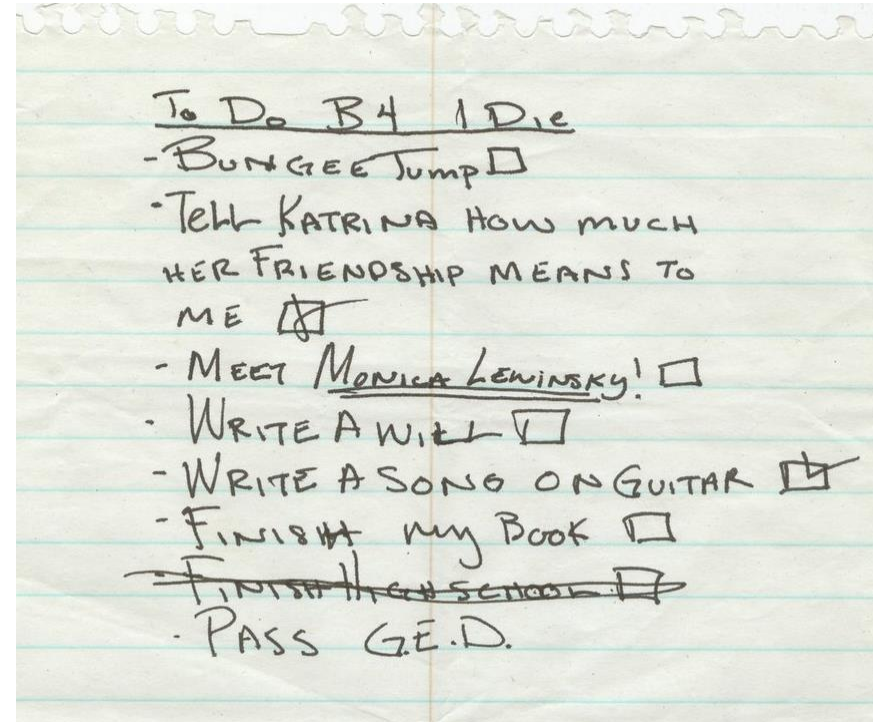 To Do B4 I Die
- Bungee Jump ☐
- Tell Katrina how much
her friendship means to
me ☑
- Meet Monica Lewinsky! ☐
- Write a will ☐
- Write a song on guitar ☑
- Finish my book ☐
- Finish High School ☐
- Pass G.E.D.